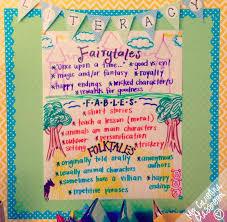 LITERACY
Fairytales
* "Once upon a time..." * good vs. evil
* magic and/or fantasy * royalty
* happy endings * wicked character(s)
* rewards for goodness
FABLES
* short stories
* teach a lesson (moral)
* animals are main characters
* personification
* trickery
FOLKTALES
* originally told orally * anonymous authors
* usually involve animals/humans
* sometimes have a villain * happy ending
* repetitive phrases